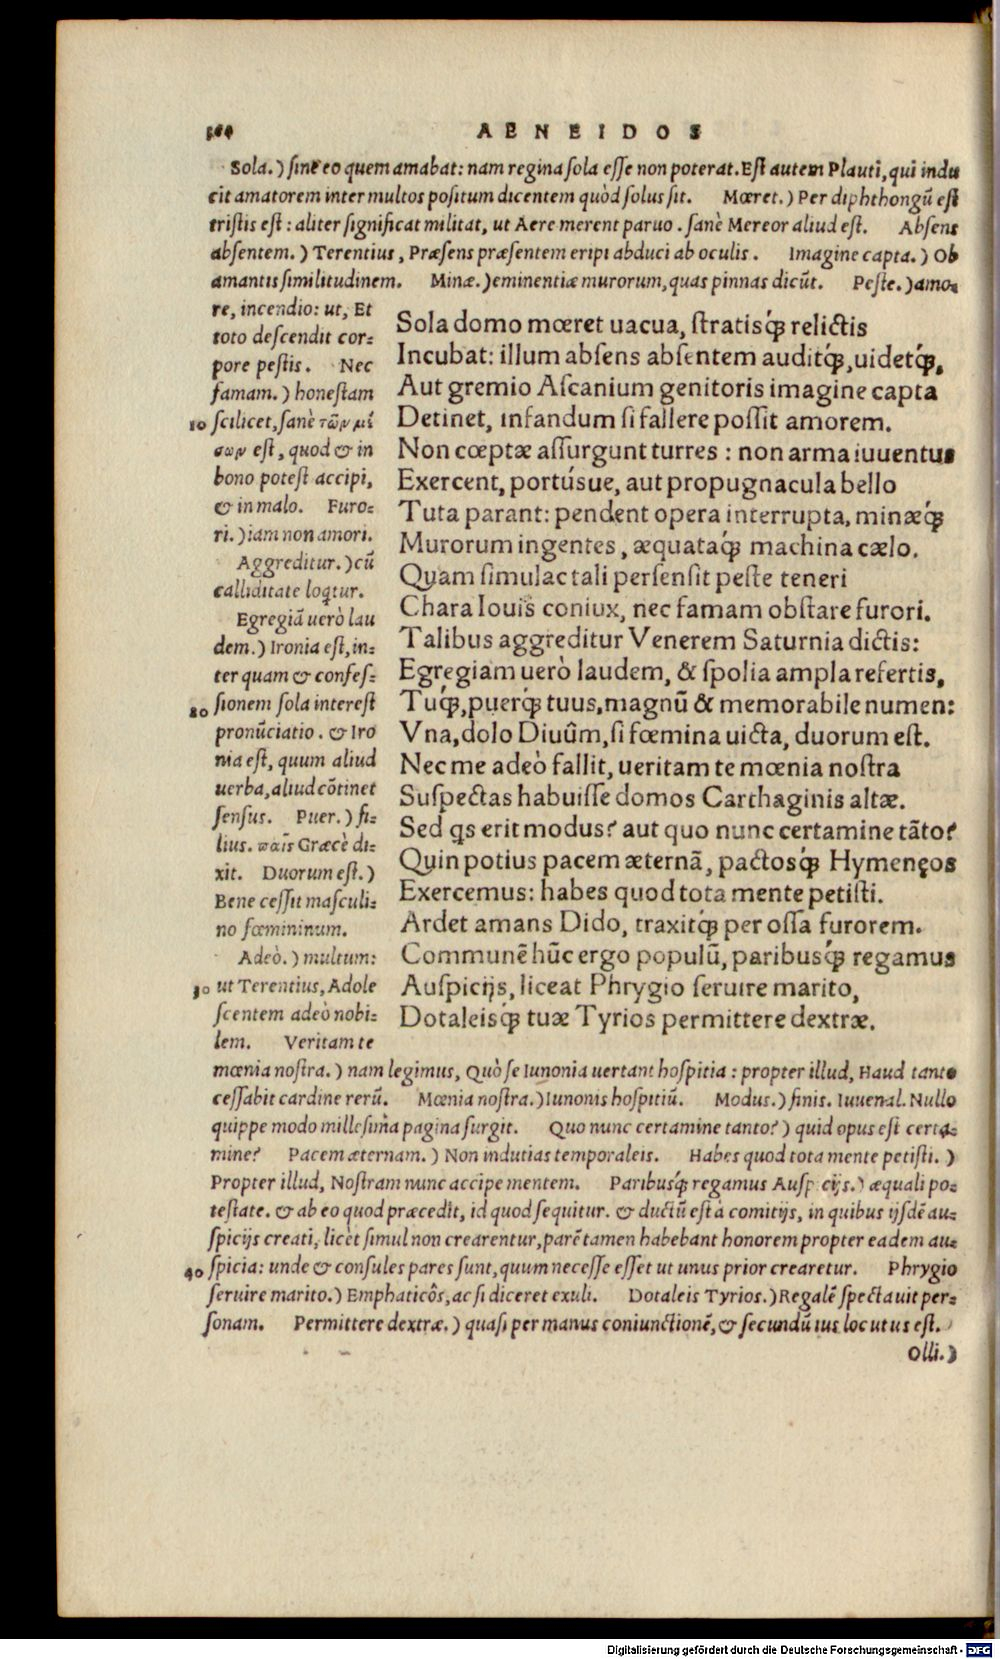 AENEIDOS
Sola.) sine eo quem amabat: nam regina sola esse non poterat. Est autem Plauti, qui indu
cit amatorem inter multos positum dicentem quòd solus sit. Mœret.) Per diphthongũ est
tristis est: aliter significat militat, ut Aere merent paruo. sanè Mereor aliud est. Absens
absentem.) Terentius, Præsens præsentem eripi abduci ab oculis. Imagine capta.) Ob
amantis similitudinem. Minæ.) eminentiæ murorum, quas pinnas dicũt. Peste.) amo-
re, incendio: ut, Et
toto descendit cor-
pore pestis. Nec
famam.) honestam
10 scilicet, sanè τῶν μέ
σων est, quod & in
bono potest accipi,
& in malo. Furo-
ri.) iam non amori.
Aggreditur.) cũ
calliditate loqtur.
Egregiã uerò lau
dem.) Ironia est, in-
ter quam & confes-
20 sionem sola interest
pronũciatio. & Iro
nia est, quum aliud
uerba, aliud cõtinet
sensus. Puer.) fi-
lius. παῖς Græcè di-
xit. Duorum est.)
Bene cessit masculi-
no fœmininum.
Adeò.) multum:
30 ut Terentius, Adole
scentem adeò nobi-
lem. Veritam te
Sola domo mœret uacua, stratisq́; relictis
Incubat: illum absens absentem auditq́;, uidetq́;,
Aut gremio Ascanium genitoris imagine capta
Detinet, infandum si fallere possit amorem.
Non cœptæ assurgunt turres: non arma iuuentus
Exercent, portúsue, aut propugnacula bello
Tuta parant: pendent opera interrupta, minæq́;
Murorum ingentes, æquataq́; machina cælo.
Quam simulac tali persensit peste teneri
Chara Iouis coniux, nec famam obstare furori.
Talibus aggreditur Venerem Saturnia dictis:
Egregiam uerò laudem, & spolia ampla refertis,
Tuq́;, puerq́; tuus, magnũ & memorabile numen:
Vna, dolo Diuûm, si fœmina uicta, duorum est.
Nec me adeò fallit, ueritam te mœnia nostra
Suspectas habuisse domos Carthaginis altæ.
Sed qs erit modus? aut quo nunc certamine tãto?
Quin potius pacem æternã, pactosq́; Hymenęos
Exercemus: habes quod tota mente petisti.
Ardet amans Dido, traxitq́; per ossa furorem.
Communẽ hũc ergo populũ, paribusq́; regamus
Auspicijs, liceat Phrygio seruire marito,
Dotaleisq́; tuæ Tyrios permittere dextræ.
mœnia nostra.) nam legimus, Quò se Iunonia uertant hospitia: propter illud, Haud tanto
cessabit cardine rerũ. Mœnia nostra.) Iunonis hospitiũ. Modus.) finis. Iuuenal. Nullo
quippe modo millesima pagina surgit. Quo nunc certamine tanto?) quid opus est certa-
mine? Pacem æternam.) Non indutias temporaleis. Habes quod tota mente petisti.)
Propter illud, Nostram nunc accipe mentem. Paribusq́; regamus Auspicijs.) æquali po-
testate. & ab eo quod præcedit, id quod sequitur. & ductũ est à comitijs, in quibus ijsdẽ au-
spicijs creati, licèt simul non crearentur, parẽ tamen habebant honorem propter eadem au-
40 spicia: unde & consules pares sunt, quum necesse esset ut unus prior crearetur. Phrygio
seruire marito.) Emphaticôs, ac si diceret exuli. Dotaleis Tyrios.) Regalẽ spectauit per-
sonam. Permittere dextræ.) quasi per manus coniunctionẽ, & secundũ ius locutus est.
Olli.)
Digitalisierung gefördert durch die Deutsche Forschungsgemeinschaft - DFG